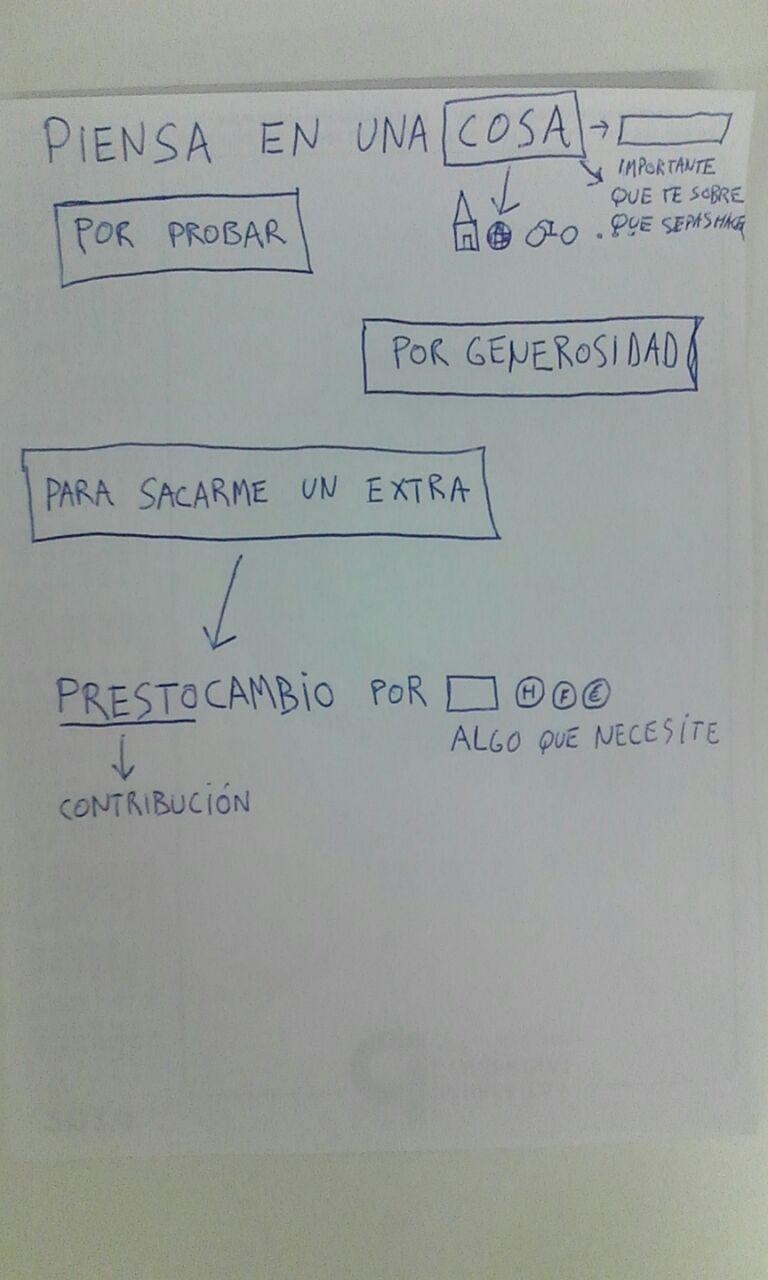 PIENSA EN UNA COSA
IMPORTANTE
QUE TE SOBRE
QUE SEPAS HACER
POR PROBAR
POR GENEROSIDAD
PARA SACARME UN EXTRA
PRESTOCAMBIO POR H F €
ALGO QUE NECESITE
CONTRIBUCIÓN